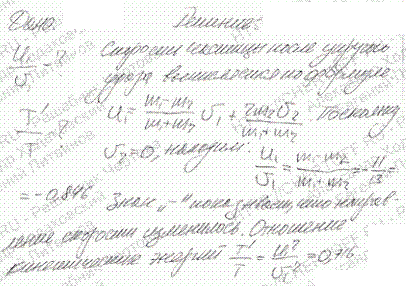 Дано: Решение:
u₁/υ₁ - ? Скорости частицы после упругого
удара вычисляются по формуле
T'/T - ? u₁ = (m₁-m₂)/(m₁+m₂) υ₁ + 2m₂υ₂/(m₁+m₂). Поскольку
υ₂=0, находим: u₁/υ₁ = (m₁-m₂)/(m₁+m₂) = -11/13 =
= -0,846
Знак „-" показывает, что направ-
ление скорости изменилось. Отношение
кинетических энергий T'/T = u₁²/υ₁² = 0,716